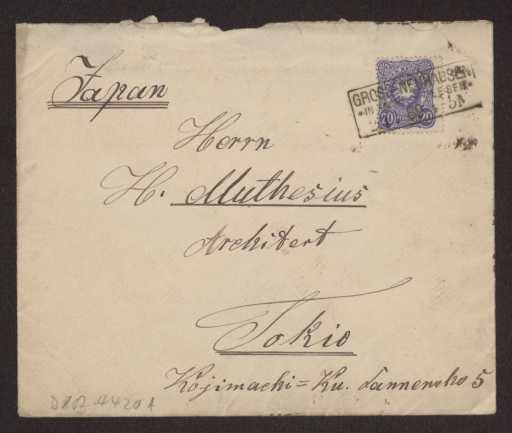 Japan
GROSS-NEUHAUSEN
20 20
Herrn
H. Muthesius
Architect
Tokio
Kojimachi=Ku. Sannencho 5